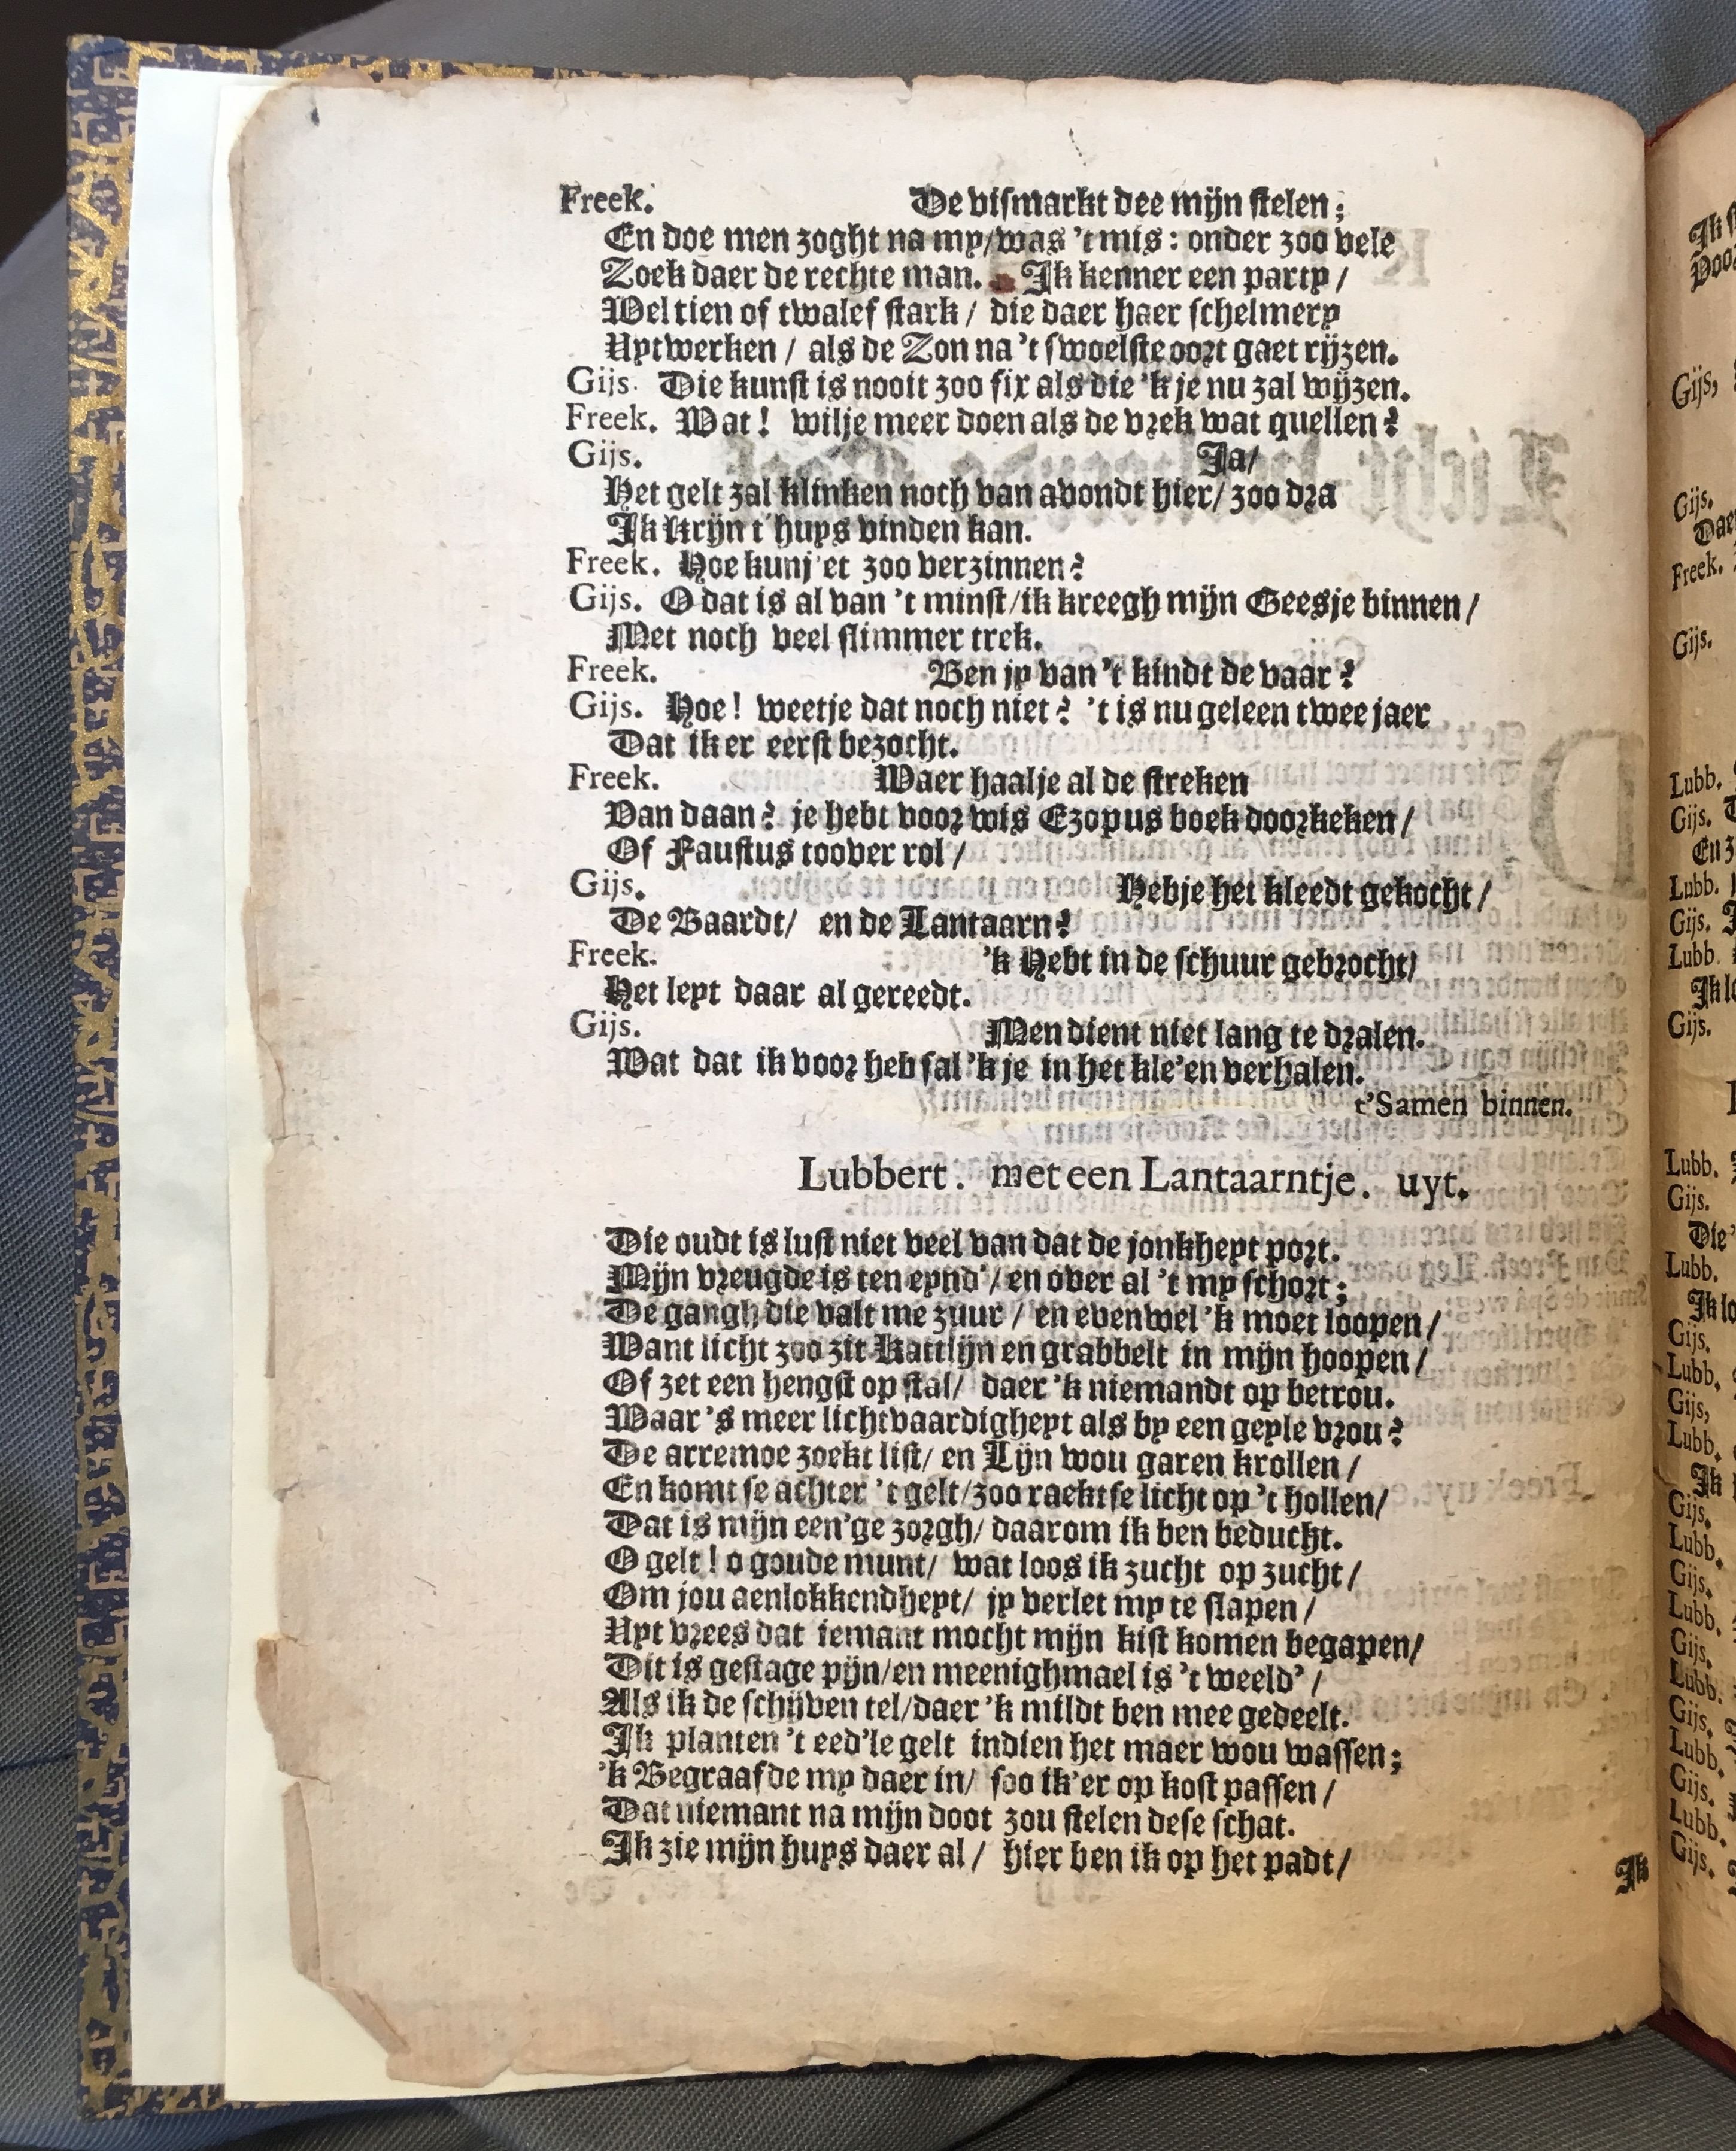 Freek. De vismarkt dee mijn stelen;
En doe men zoght na my/was 't mis: onder zoo vele
Zoek daer de rechte man. Ik kenner een party/
Wel tien of twalef stark/ die daer haer schelmery
Uytwerken/ als de Zon na 't swoelste oort gaet rijzen.
Gijs. Die kunst is nooit zoo fix als die 'k je nu zal wijzen.
Freek. Wat! wilje meer doen als de vrek wat quellen?
Gijs. Ja/
Het gelt zal klinken noch van avondt hier/ zoo dra
Ik krijn t'huys vinden kan.
Freek. Hoe kunj'et zoo verzinnen?
Gijs. O dat is al van 't minst/ik kreegh mijn Geesje binnen/
Met noch veel slimmer trek.
Freek. Ben jy van 't kindt de vaar?
Gijs. Hoe! weetje dat noch niet? 't is nu geleen twee jaer
Dat ik er eerst bezocht.
Freek. Waer haalje al de streken
Van daan? je hebt voor wis Ezopus boek doorkeken/
Of Faustus toover rol/
Gijs. Hebje het kleedt gekocht/
De Baardt/ en de Lantaarn?
Freek. 'k Hebt in de schuur gebrocht/
Het leyt daar al gereedt.
Gijs. Men dient niet lang te dralen.
Wat dat ik voor heb sal 'k je in het kle'en verhalen.
t'Samen binnen.
Lubbert. met een Lantaarntje. uyt.
Die oudt is lust niet veel van dat de jonkheyt port.
Mijn vreugde is ten eynd'/ en over al 't my schort;
De gangh die valt me zuur/ en evenwel 'k moet loopen/
Want licht zoo zit Kattlijn en grabbelt in mijn hoopen/
Of zet een hengst op stal/ daer 'k niemandt op betrou.
Waar 's meer lichtvaardigheyt als by een geyle vrou?
De arremoe zoekt list/ en Lijn wou garen krollen/
En komt se achter 't gelt/zoo raektse licht op 't hollen/
Dat is mijn een'ge zorgh/ daarom ik ben beducht.
O gelt! o goude munt/ wat loos ik zucht op zucht/
Om jou aenlokkendheyt/ jy verlet my te slapen/
Uyt vrees dat iemant mocht mijn kist komen begapen/
Dit is gestage pijn/en meenighmael is 't weeld'/
Als ik de schijven tel/daer 'k mildt ben mee gedeelt.
Ik planten 't eed'le gelt indien het maer wou wassen;
'k Begraafde my daer in/ soo ik'er op kost passen/
Dat niemant na mijn doot zou stelen dese schat.
Ik zie mijn huys daer al/ hier ben ik op het padt/
Ik